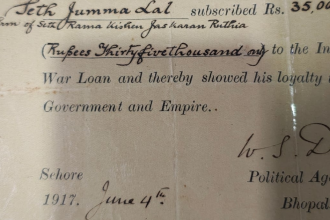 Seth Jumma Lal subscribed Rs. 35,00
Firm of Seth Rama Kishen Jaskaran Ruthia
(Rupees Thirty five thousand only) to the In
War Loan and thereby showed his loyalty
Government and Empire..
W. S. D
Sehore Political Ag
1917. June 4th. Bhopal